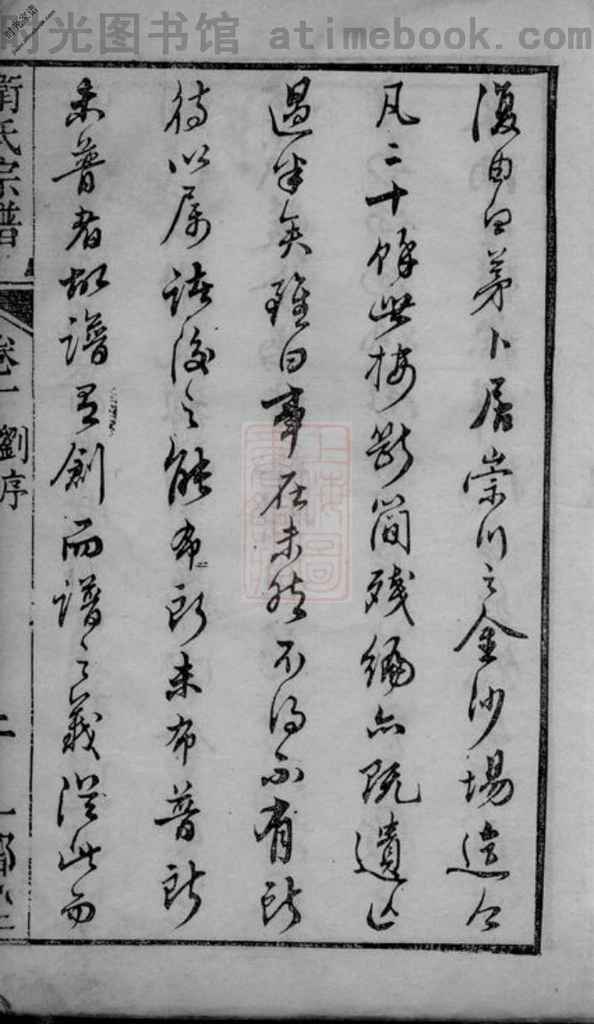 时光图书馆 atimebook.com
復由茅卜居崇川之金沙場迄今
凡二十餘世斷簡殘編亦既遺亡
過半矣雖曰事在未然不得不有所
待以屬諸後之能布所未布普所
未普者故譜有創而譜之義從此而
衛氏宗譜
卷一 劉序
二